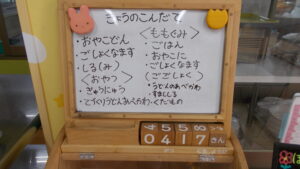 きょうのこんだて
・おやこどん
・ごしょくなます
・しる(み)
〈おやつ〉
・ぎゅうにゅう
・てづくりうどんあべかわ・くだもの
〈ももぐみ〉
・ごはん
・おやこに
・ごしょくなます
〈ごごしょく〉
・うどんのあべかわ
・すましじる
4 5 5 8
0 4 1 7